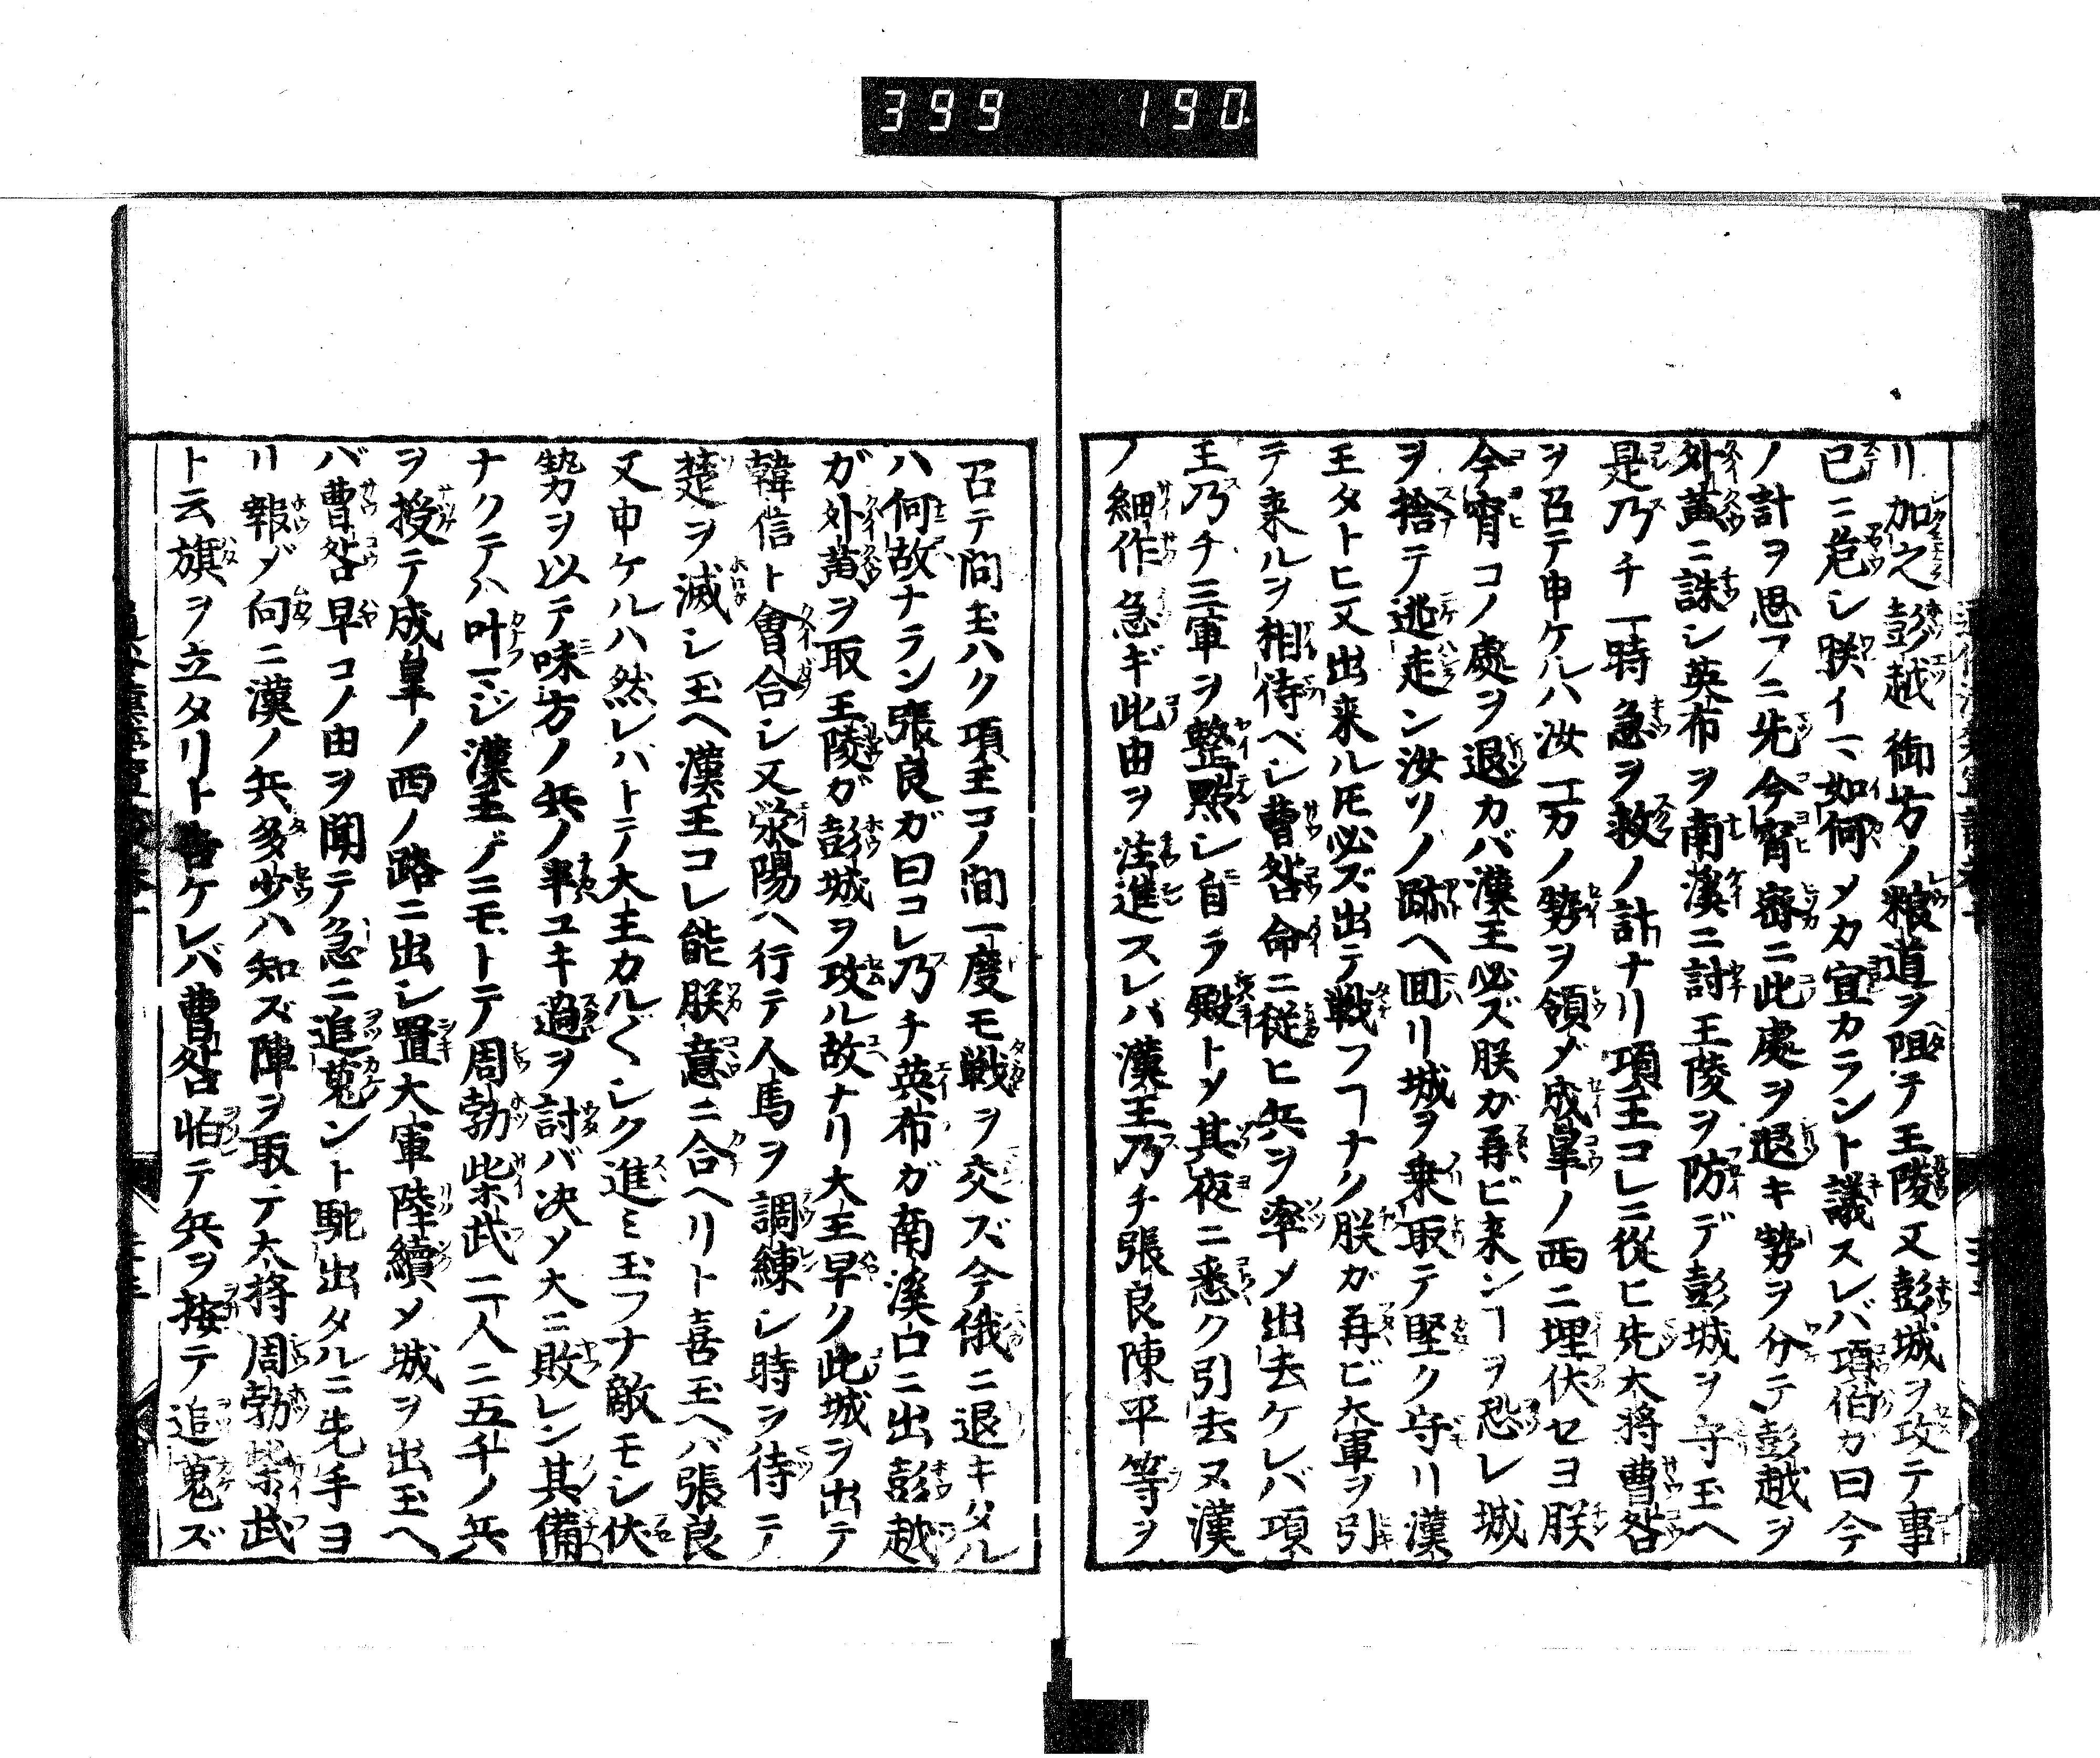 399 190.
リ加之彭越御方ノ粮道ヲ阻テ王陵又彭城ヲ攻テ事
已ニ危シ朕イマ如何メカ宜カラント議スレバ項伯カ曰今
ノ計ヲ思フニ先今宵密ニ此處ヲ退キ勢ヲ分テ彭越ヲ
外黄ニ誅シ英布ヲ南溪ニ討王陵ヲ防デ彭城ヲ守玉ヘ
是乃チ一時急ヲ救ノ計ナリ項王コレニ從ヒ先大将曹咎
ヲ召テ申ケルハ汝一万ノ勢ヲ領メ成皐ノ西ニ埋伏セヨ朕
今宵コノ處ヲ退カバ漢王必ズ朕ガ再ビ来ンヿヲ恐レ城
ヲ捨テ逃走ン汝ソノ跡ヘ回リ城ヲ乗取テ堅ク守リ漢
王タトヒ又出来ルトモ必ズ出テ戦フヿナク朕ガ再ビ大軍ヲ引
テ来ルヲ相待ベシ曹咎命ニ従ヒ兵ヲ率メ出去ケレバ項
王乃チ三軍ヲ整點シ自ラ殿トメ其夜ニ悉ク引去ヌ漢
ノ細作急ギ此由ヲ注進スレバ漢王乃チ張良陳平等ヲ
召テ問玉ハク項王コノ間一度モ戦ヲ交ズ今俄ニ退キタル
ハ何故ナラン張良ガ曰コレ乃チ英布ガ南溪口ニ出彭越
ガ外黄ヲ取王陵ガ彭城ヲ攻ル故ナリ大王早ク此城ヲ出テ
韓信ト會合シ又滎陽ヘ行テ人馬ヲ調練シ時ヲ待テ
楚ヲ滅シ玉ヘ漢王コレ能朕意ニ合ヘリト喜玉ヘバ張良
又申ケルハ然レバトテ大王カル〱シク進ミ玉フナ敵モシ伏
勢ヲ以テ味方ノ兵ノ半ユキ過ヲ討バ决メ大ニ敗レン其備
ナクテハ叶マジ漢王ゲニモトテ周勃柴武二人ニ五千ノ兵
ヲ授テ成皐ノ西ノ路ニ出シ置大軍陸續メ城ヲ出玉ヘ
バ曹咎早コノ由ヲ聞テ急ニ追蒐ント馳出タルニ先手ヨ
リ報メ向ニ漢ノ兵多少ハ知ズ陣ヲ取テ大将周勃柴武
ト云旗ヲ立タリト告ケレバ曹咎怕テ兵ヲ按テ追蒐ズ